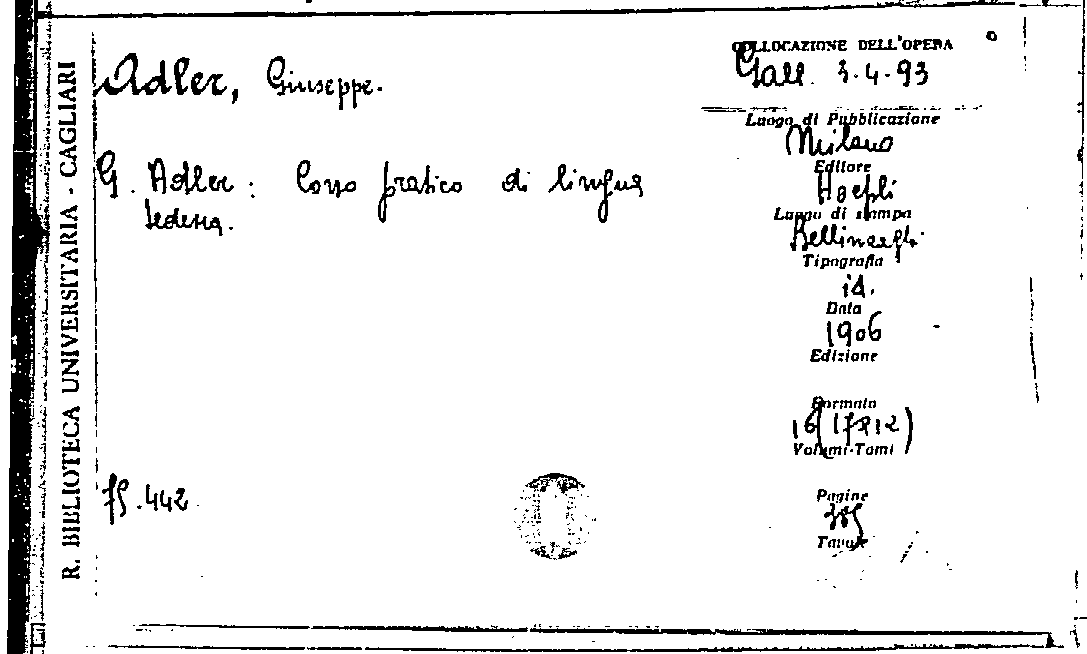 R. BIBLIOTECA UNIVERSITARIA - CAGLIARI
Adler, Giuseppe.
G. Adler: Corso pratico di lingua
tedesca.
75.442
COLLOCAZIONE DELL'OPERA
Gall. 3.4.93
Luogo di Pubblicazione
Milano
Editore
Hoepli
Luogo di stampa
Tipografia
id.
Data
1906
Edizione
Formato
16 (17x12)
Volumi-Tomi
Pagine
Tavole